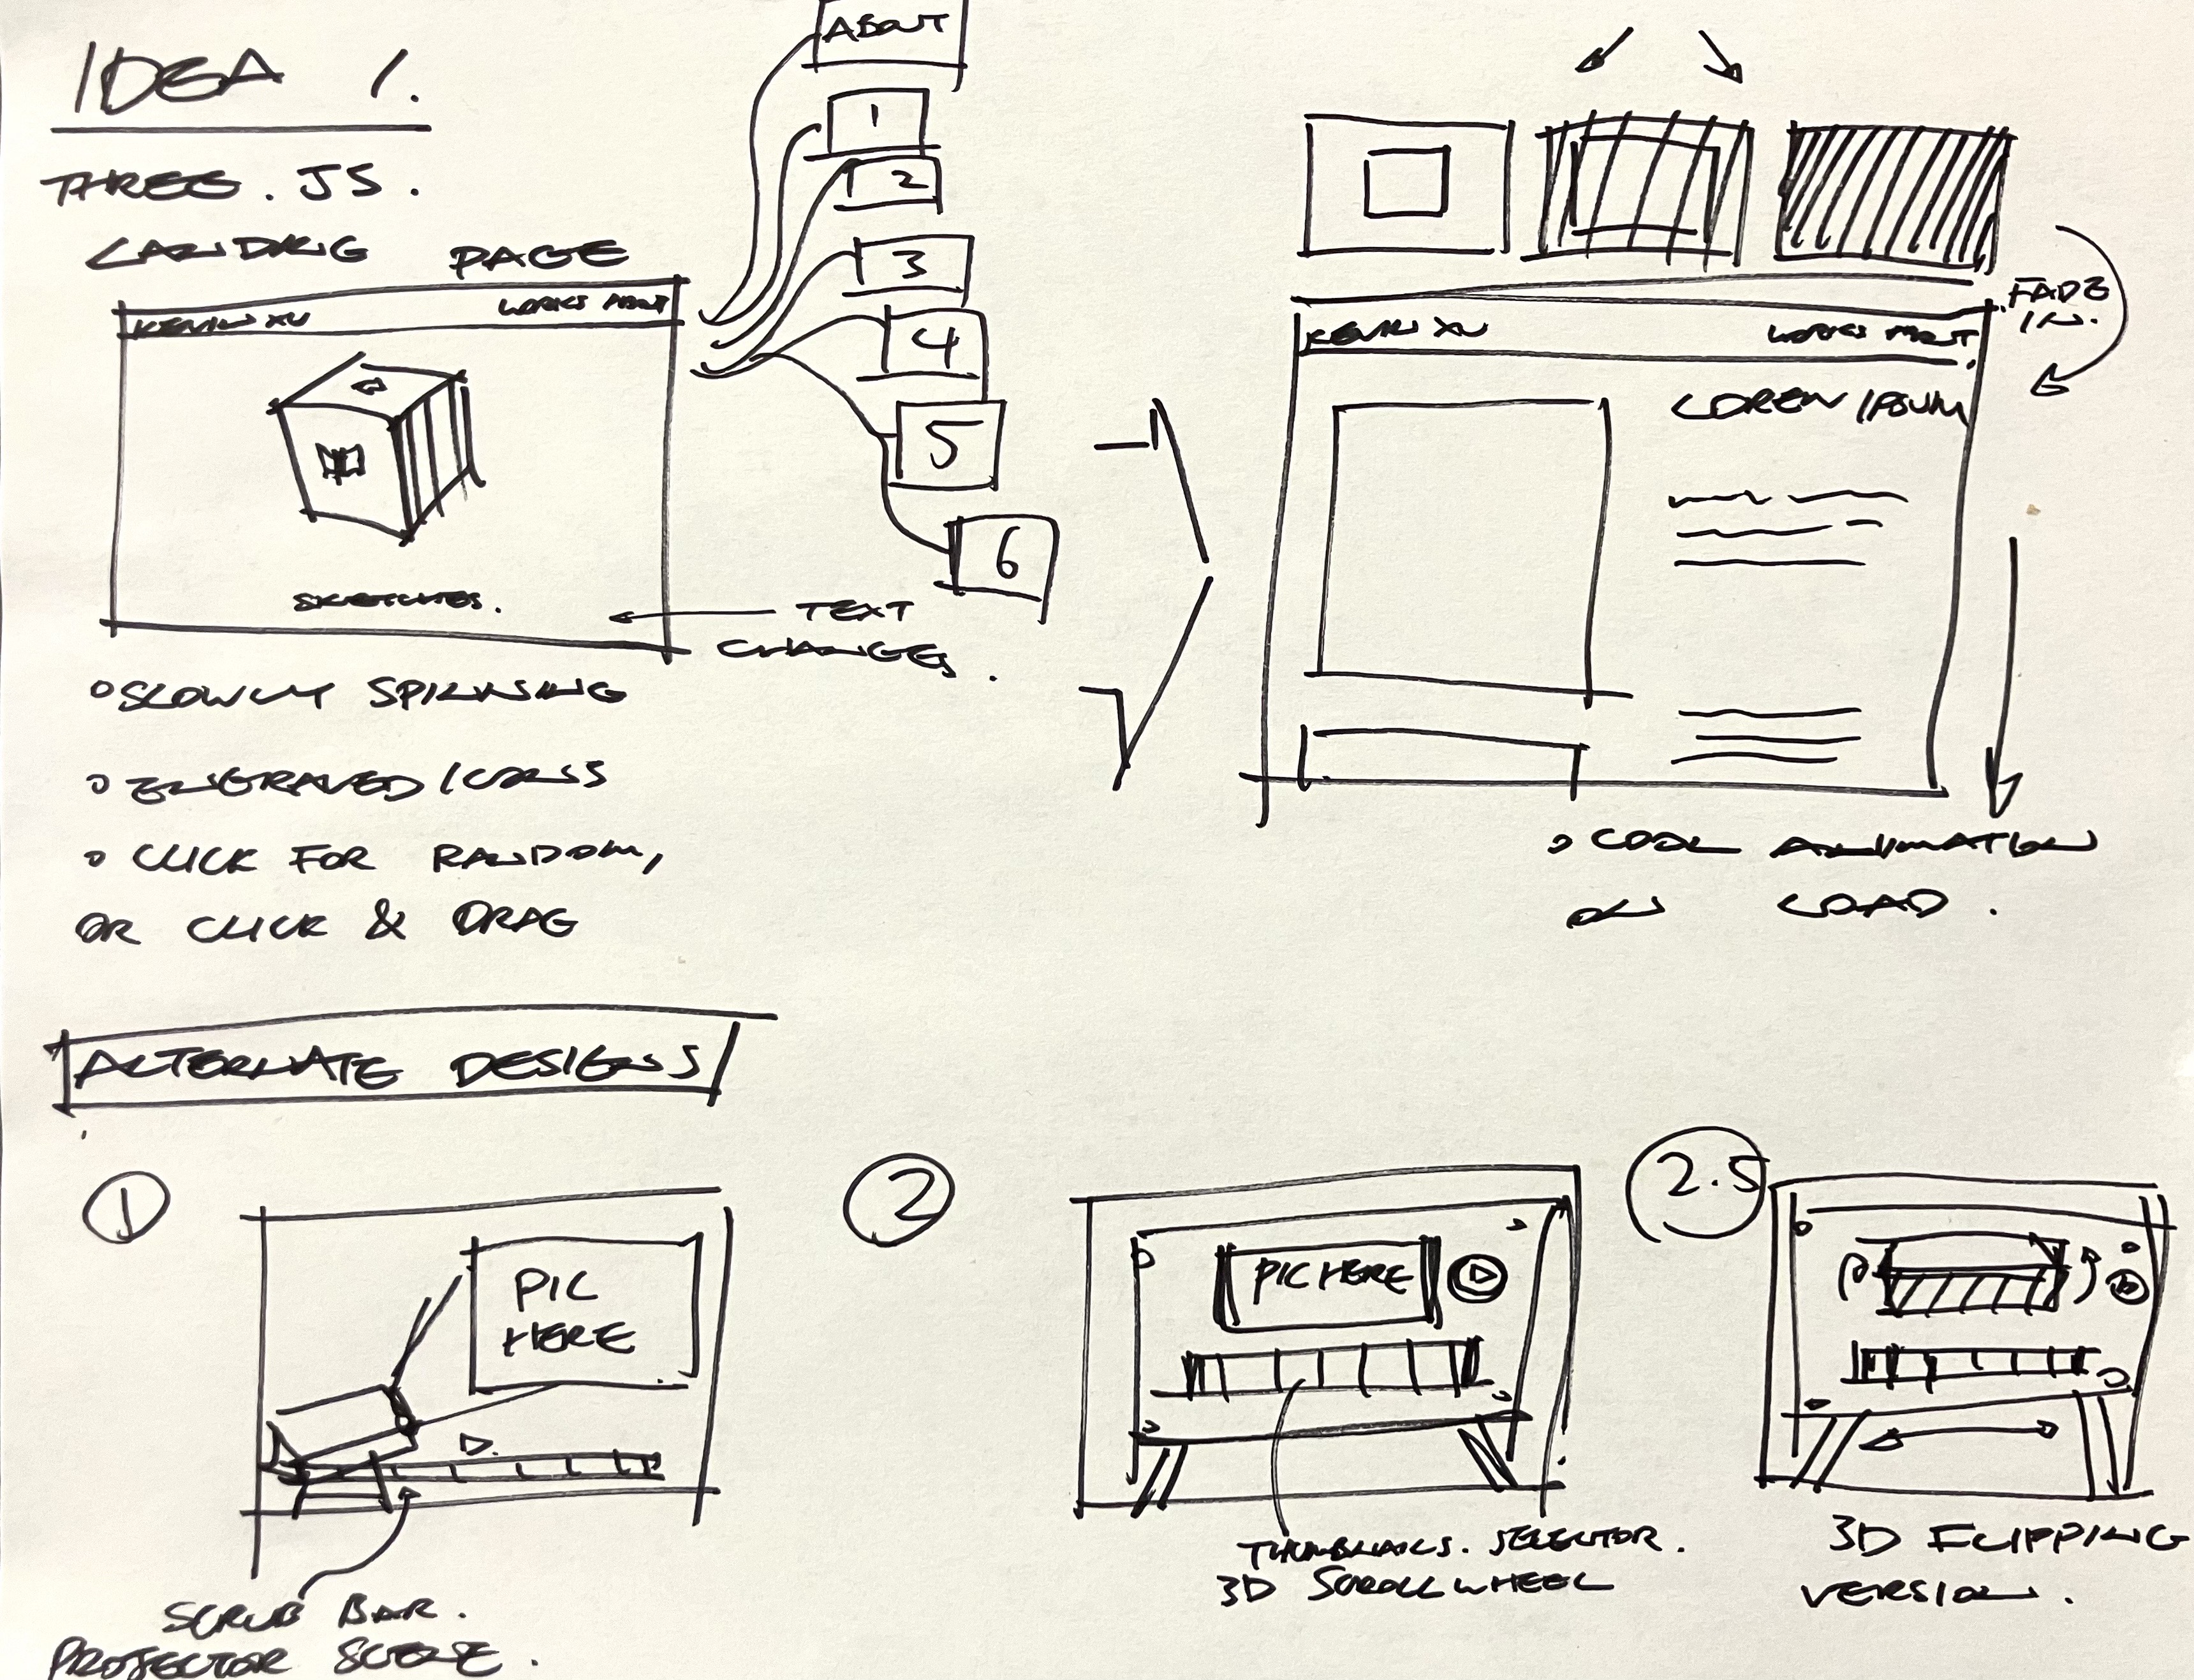 IDEA 1.
THREE.JS.
LANDING PAGE
KEVIN XU WORKS ABOUT
SKETCHES.
TEXT
CHANGES.
ABOUT
1
2
3
4
5
6
o SLOWLY SPINNING
o ENGRAVED ICONS
o CLICK FOR RANDOM,
OR CLICK & DRAG
FADE
IN.
KEVIN XU WORKS ABOUT
LOREM IPSUM
o COOL ANIMATION
ON LOAD.
ALTERNATE DESIGNS
1
PIC
HERE
SCRUB BAR.
PROJECTOR SCENE.
2
PIC HERE
THUMBNAILS. SELECTOR.
3D SCROLLWHEEL
2.5
3D FLIPPING
VERSION.